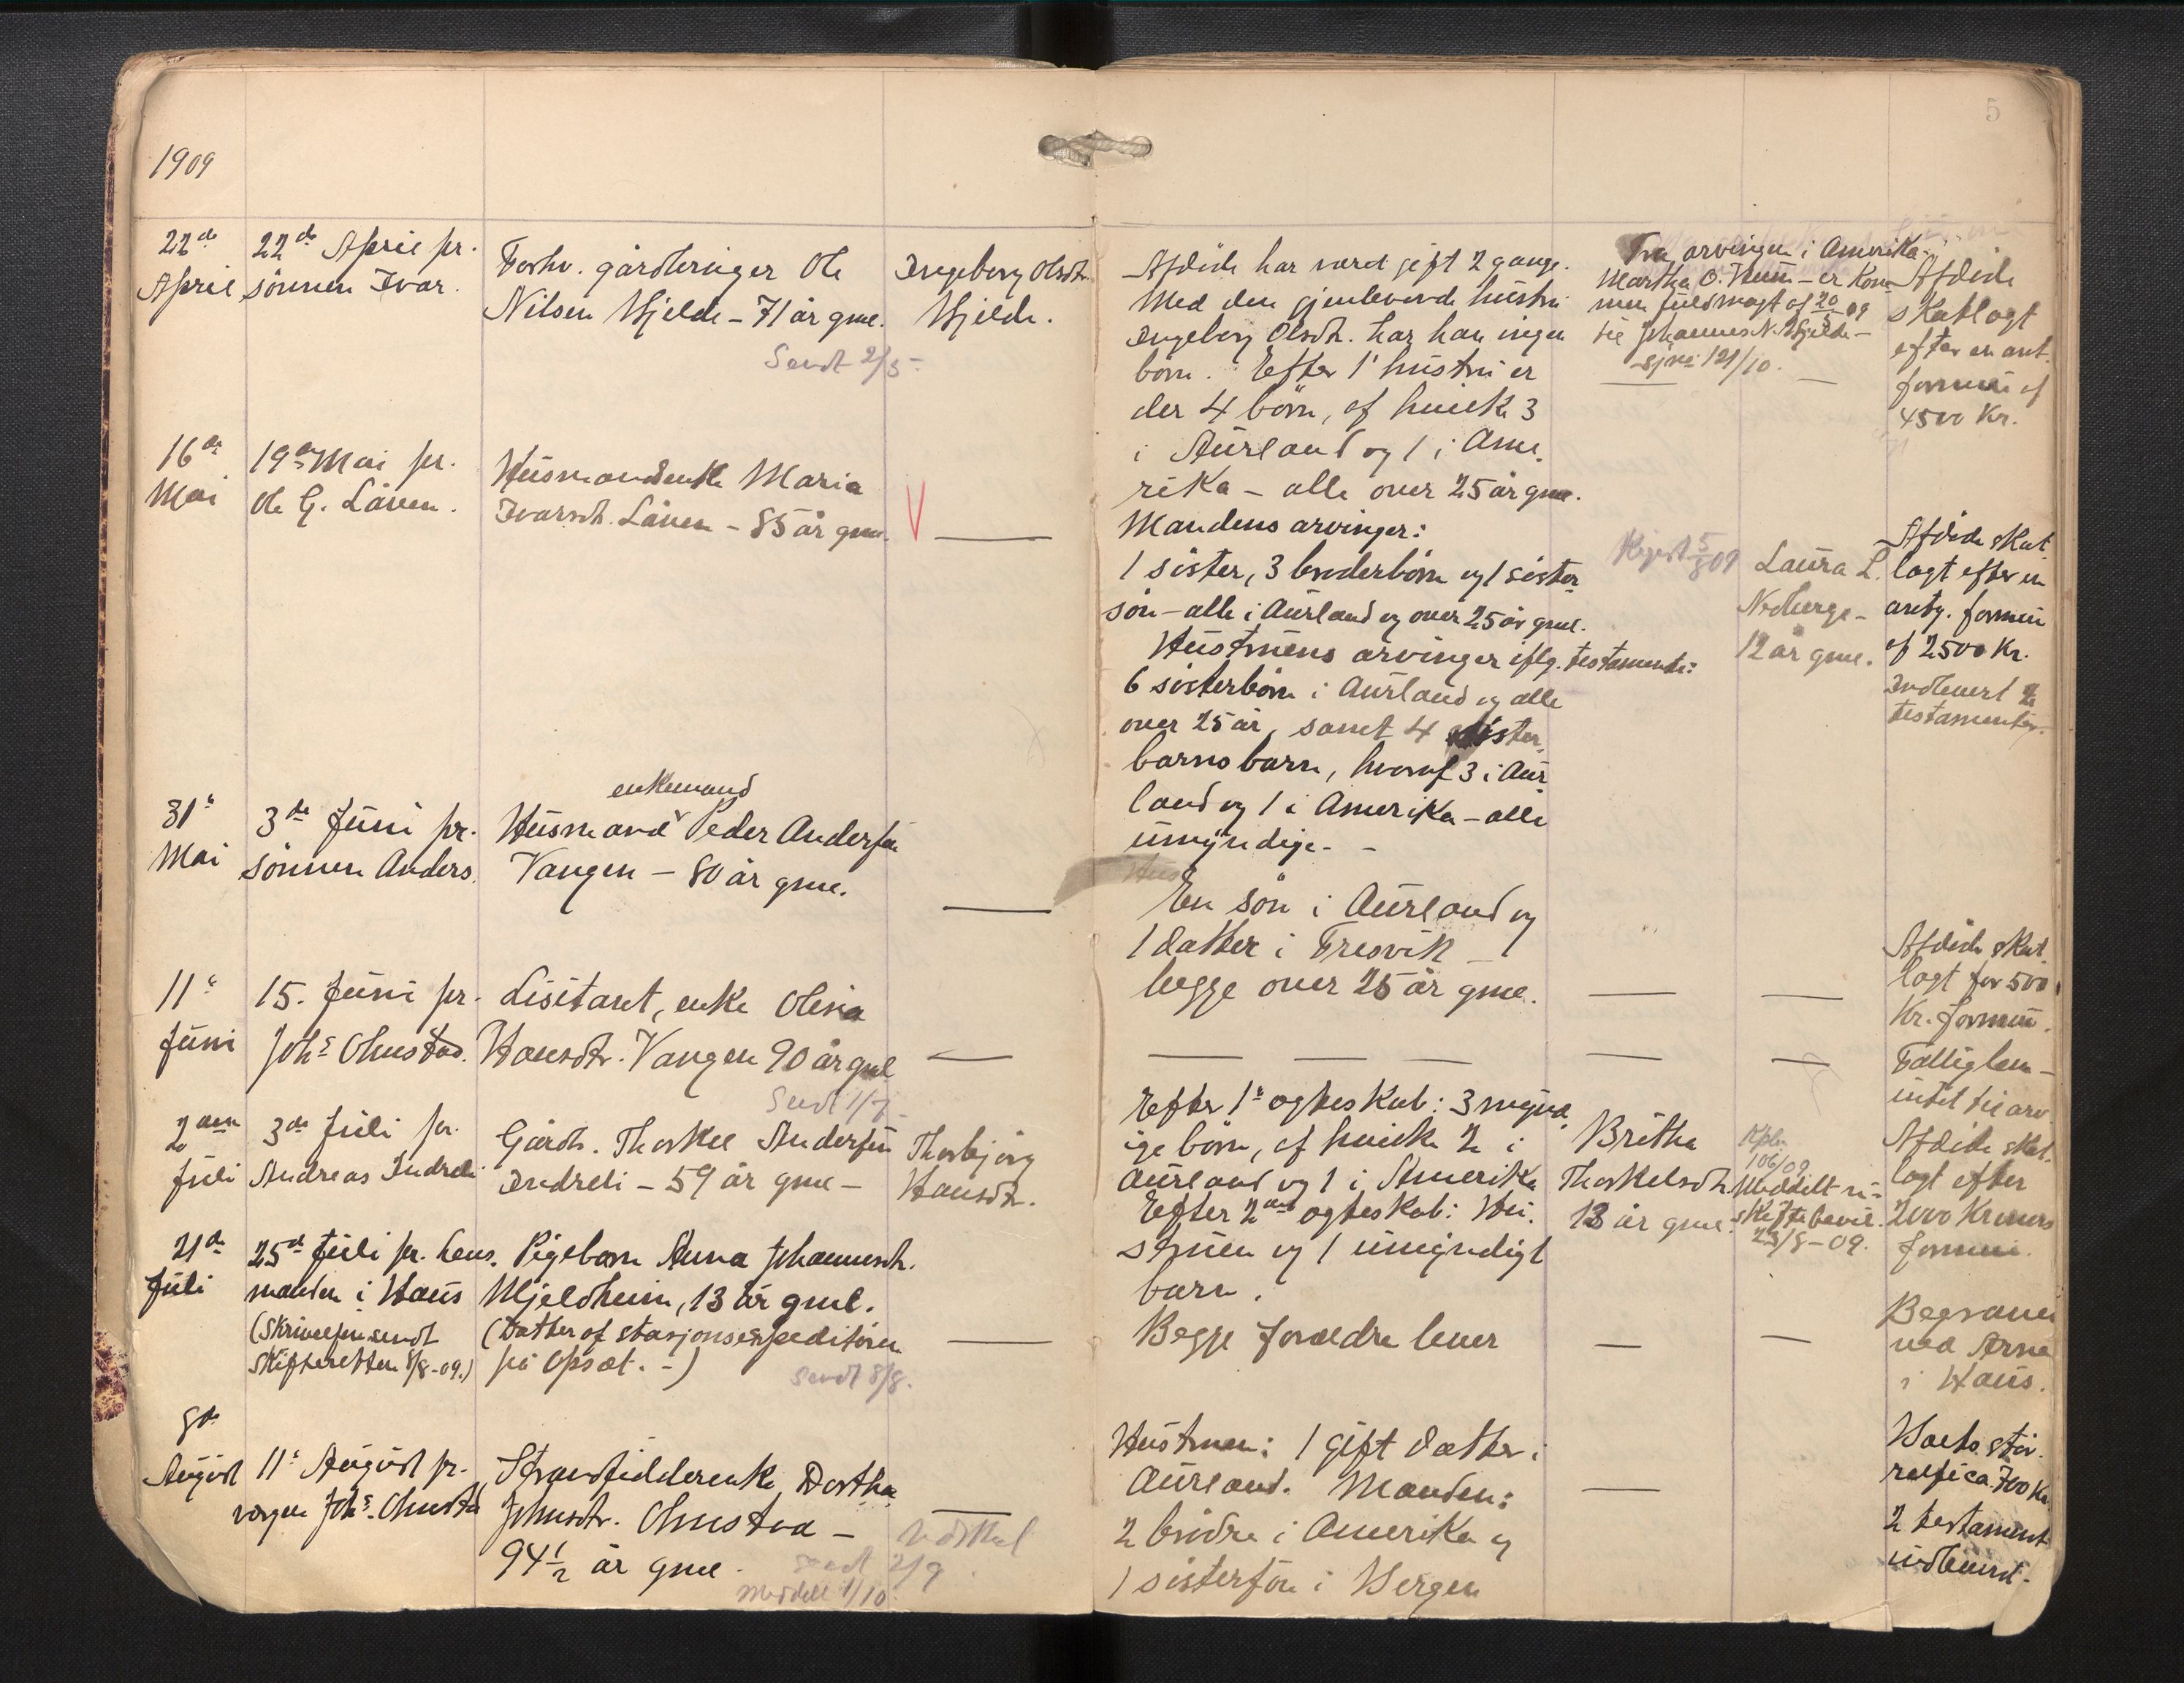 1909
5
22de
April
22de April pr.
sønnen Ivar.
Forhv. gårdbruger Ole
Nilsen Hjelde - 71 år gml.
Sendt 2/5 -
Ingeborg Olsdtr.
Hjelde.
Afdøde har været gift 2 gange.
Med den gjenlevende hustru
Ingeborg Olsdtr. har han ingen
børn. Efter 1' hustru er
der 4 børn, af hvilke 3
i Aurland og 1 i Ame-
rika - alle over 25 år gml.
Fra arvingen i Amerika
Martha O. - er kom-
men fuldmagt af 09
til Johannes N. Hjelde -
121/10.
Afdøde
skatlagt
efter en ant.
formue af
4500 Kr.
16de
Mai
19de Mai pr.
Ole G. Låven.
Husmandsenke Maria
Ivarsdt. Låven - 85 år gml.
V
Mandens arvinger:
1 søster, 3 broderbørn og 1 søster-
søn - alle i Aurland og over 25 år gml.
Hustruens arvinger iflg. testamente:
6 søsterbørn i Aurland og alle
over 25 år, samt 4 søster-
barns barn, hvoraf 3 i Aur-
land og 1 i Amerika - alle
umyndige. -
09
Laura L.
Nedberge -
12 år gml.
Afdøde skat-
lagt efter en
antg. formue
af 2500 Kr.
Indlevert 2
testamenter.
31'
Mai
3de Juni pr.
sønnen Anders.
enkemand
Husmand Peder Andersen
Vangen - 80 år gml.
Hus
En søn i Aurland og
1 datter i Fresvik -
begge over 25 år gml.
Afdøde skat-
lagt for 500
Kr. formue.
11'
Juni
15. Juni pr.
Johs Ohnstad.
Lisitaret, enke Olina
Hansdtr. Vangen 90 år gml
Sendt 1/7
Fattiglem -
intet til arv.
2den
Juli
3de Juli pr.
Andreas Indreli
Gårdb. Thorkel Andersen
Indreli - 59 år gml -
Thorbjørg
Hansdtr.
Efter 1' ægteskab: 3 mynd-
ige børn, af hvilke 2 i
Aurland og 1 i Amerika
Efter 2det ægteskab: Hu-
struen og 1 umyndigt
barn.
Britha
Thorkelsdtr.
13 år gml.
106/09
Meddelt u-
skiftebevil.
23/8 - 09.
Afdøde skat-
lagt efter
2000 Kroners
formue.
21de
Juli
25de Juli pr. lens-
manden i Haus
(Skrivelsen sendt
Skifteretten 8/8 - 09.)
Pigebarn Anna Johannesdt.
Mjeldheim, 13 år gml.
(Datter af stasjonsexpeditøren
på Opset. -)
Sendt 8/8.
Begge forældre lever
Begraves
ved Arna
i Haus.
8de
August
11' August pr.
værgen Johs. Ohnstad
Strandsidderenke Dortha
Johnsdtr. Ohnstad -
94½ år gml.
sendt 2/9
Meddelt 1/10
Hustruen: 1 gift datter i
Aurland. Manden:
2 brødre i Amerika og
1 søstersøn i Bergen
Boets stør-
relse ca. 700 Kr.
2 testament
indleveret.